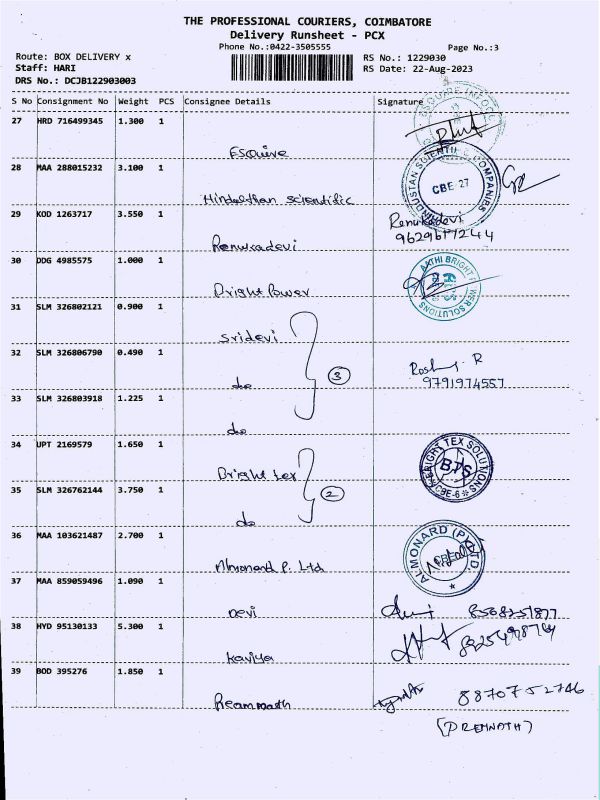 THE PROFESSIONAL COURIERS, COIMBATORE
Delivery Runsheet - PCX
Phone No.:0422-3505555
Page No.:3
Route: BOX DELIVERY x
RS No.: 1229030
Staff: HARI
RS Date: 22-Aug-2023
DRS No.: DCJB122903003
S No Consignment No Weight PCS Consignee Details Signature
27 HRD 716499345 1.300 1
Esquire
28 MAA 288015232 3.100 1
CBE-27
Hindusthan Scientific
29 KOD 1263717 3.550 1
Renukadevi
Renukadevi
30 DDG 4985575 1.000 1
Bright Power
31 SLM 326802121 0.900 1
Sridevi
32 SLM 326806790 0.490 1
3
do
9791974557
33 SLM 326803918 1.225 1
do
34 UPT 2169579 1.650 1
Bright tex
BTS
CBE-6
35 SLM 326762144 3.750 1
2
do
36 MAA 103621487 2.700 1
ALMONARD (P) LTD
Almonard P. Ltd
37 MAA 859059496 1.090 1
Devi
38 HYD 95130133 5.300 1
Kaviya
39 BOD 395276 1.850 1
8870752746
(PREMNATH)